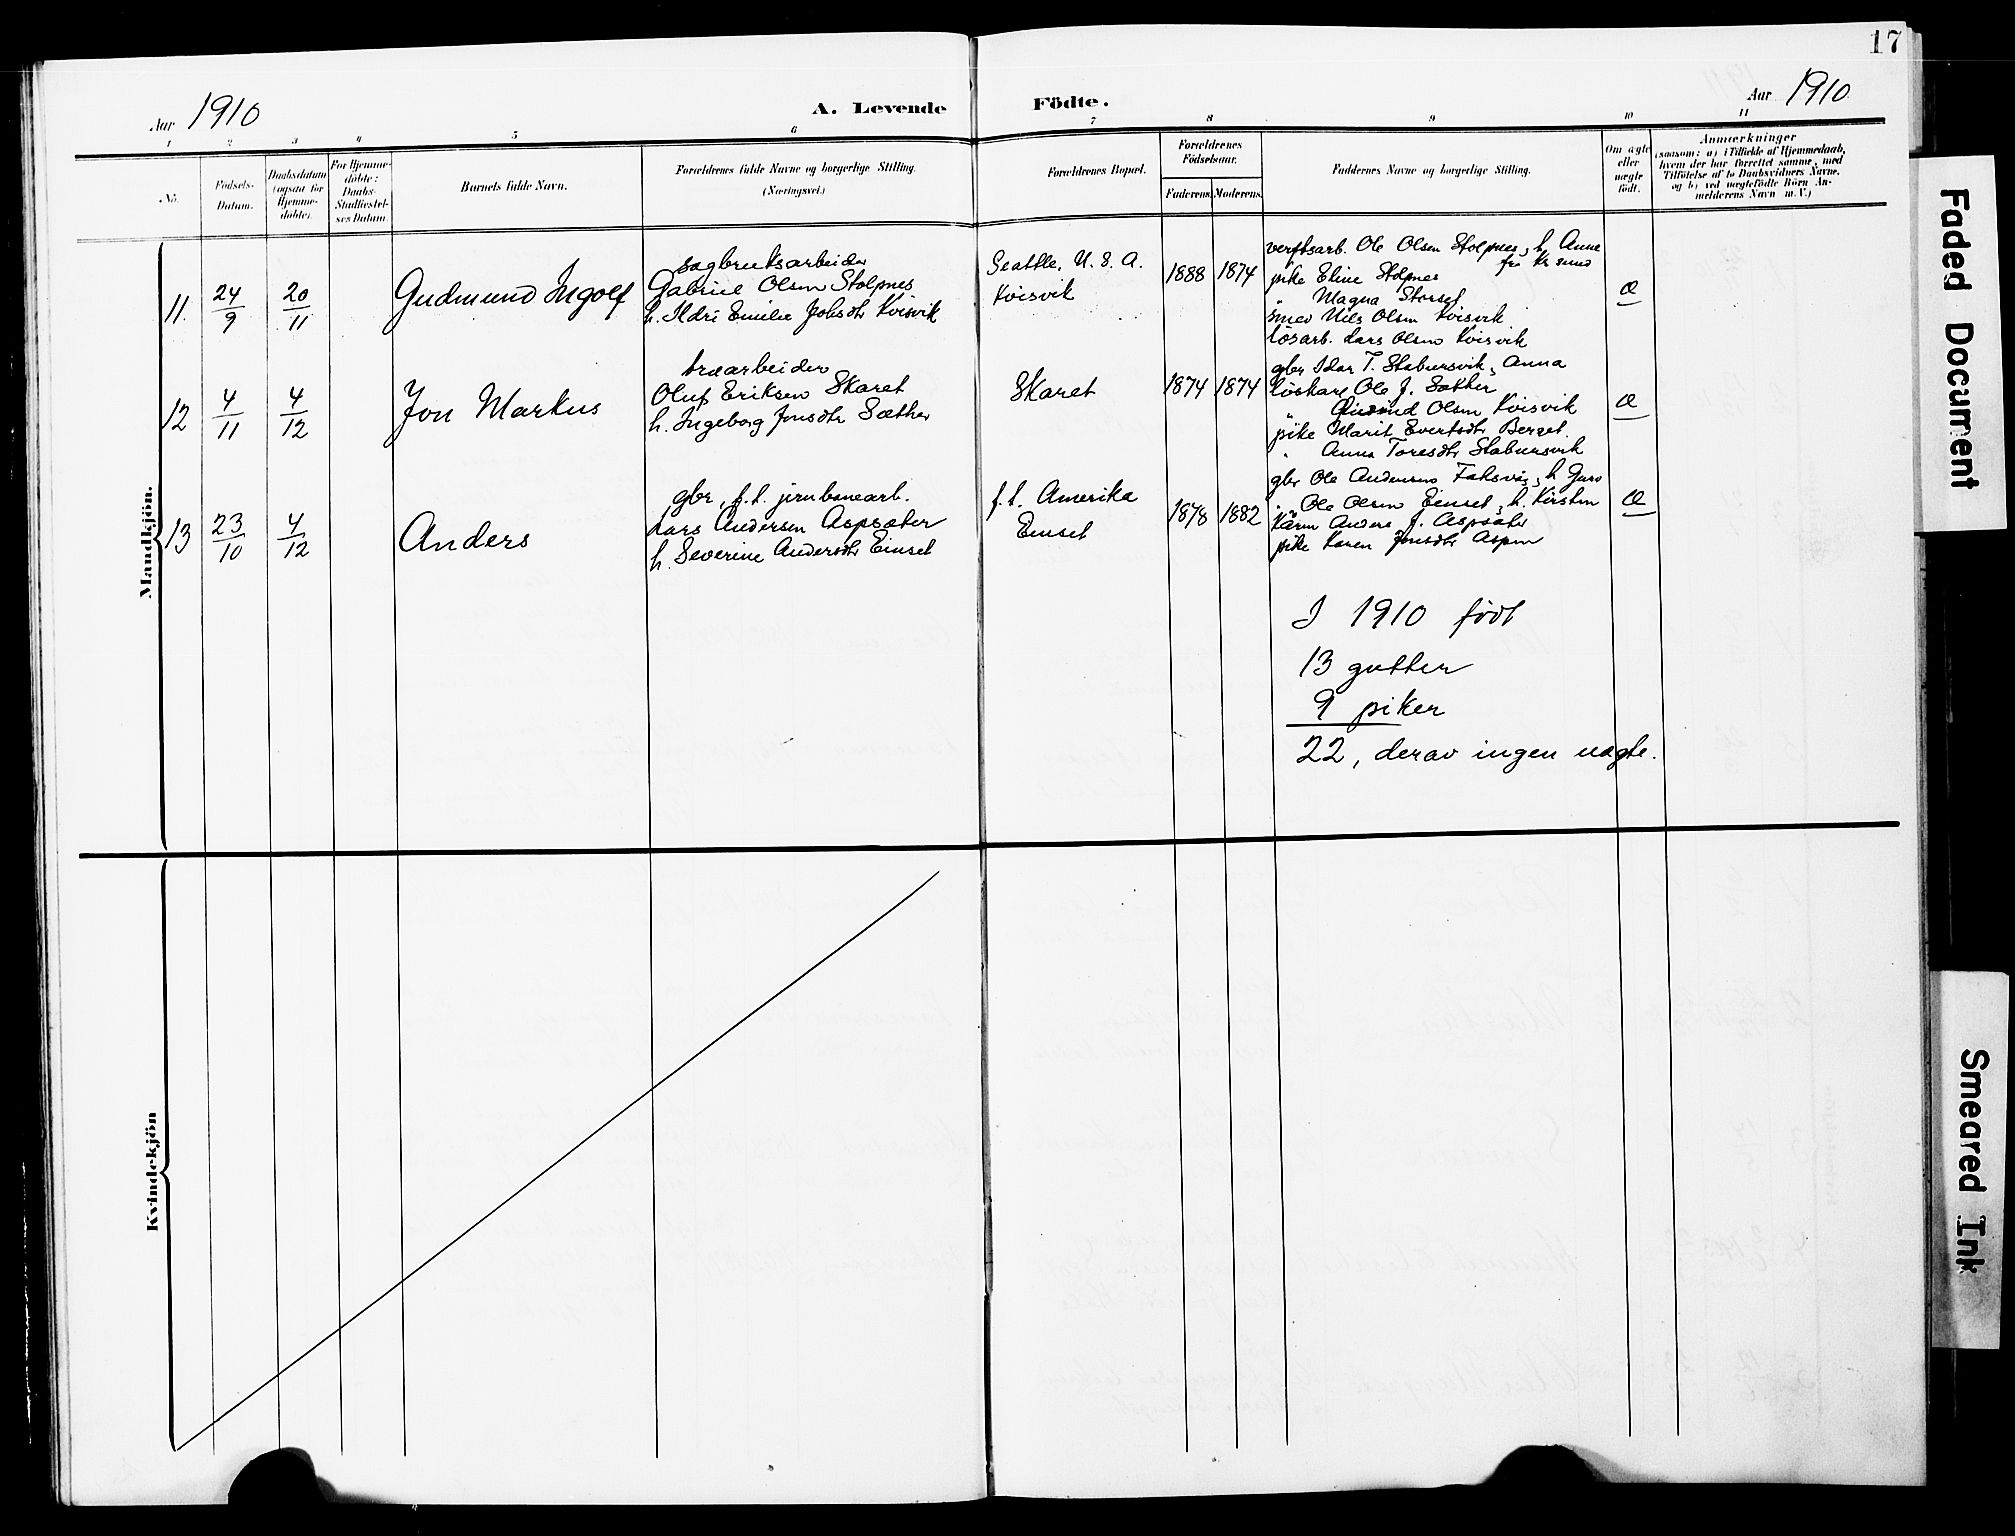 17
Aar 1910
A. Levende Födte.
Aar 1910
1 2 3 4 5 6 7 8 9 10 11
No.
Födsels-
Datum.
Daabsdatum
(ogsaa for
Hjemme-
döbte).
For Hjemme-
döbte:
Daabs-
Stadfæstel-
ses Datum
Barnets fulde Navn.
Forældrenes fulde Navne og borgerlige Stilling.
(Næringsvei.)
Forældrenes Bopæl.
Forældrenes
Födselsaar.
Faderens. Moderens.
Faddernes Navne og borgerlige Stilling.
Om ægte
eller
uægte
födt.
Anmærkninger
(saasom: a) i Tilfælde af Hjemmedaab,
hvem der har forrettet samme, med
Tilföielse af to Daabsvidners Navne,
og b) ved uægtefödte Börn An-
melderens Navn m.V.)
Mandkjön.
11. 24/9 20/11 Gudmund Ingolf
sagbruksarbeider
Gabriel Olsen Stolpnes
h. Ildri Emilie Johsdtr Kvisvik
Seattle, U.S.A.
Kvisvik
1888 1874
verftsarb. Ole Olsen Stolpnes, h. Anne
fra Kr sund
pike Eline Stolpnes
" Magna Storset
smed Nils Olsen Kvisvik
løsarb. Lars Olsen Kvisvik
Æ
12 4/11 4/12 Jon Markus
træarbeider
Oluf Eriksen Skaret
h. Ingeborg Jonsdtr Sæther
Skaret
1874 1874
gbr Idar T. Stabursvik, Anna
løskarl Ole J. Sæther
" Olsen Kvisvik
pike Marit Evertsdtr Berget
" Anna Toresdtr Stabursvik
Æ
13 23/10 4/12 Anders
gbr, f.t. jernbanearb.
Lars Andersen Aspsæter
h. Severine Andersdtr Einset
f.t. Amerika
Einset
1878 1882
gbr Ole Andersen h. Guro
" Ole Olsen Einset, h. Kirsten
Anders J. Aspsæter
pike Karen Jonsdtr Aspen
Æ
I 1910 født
13 gutter
9 piker
22, derav ingen uægte.
Kvindekjön
Faded Document
Smeared Ink